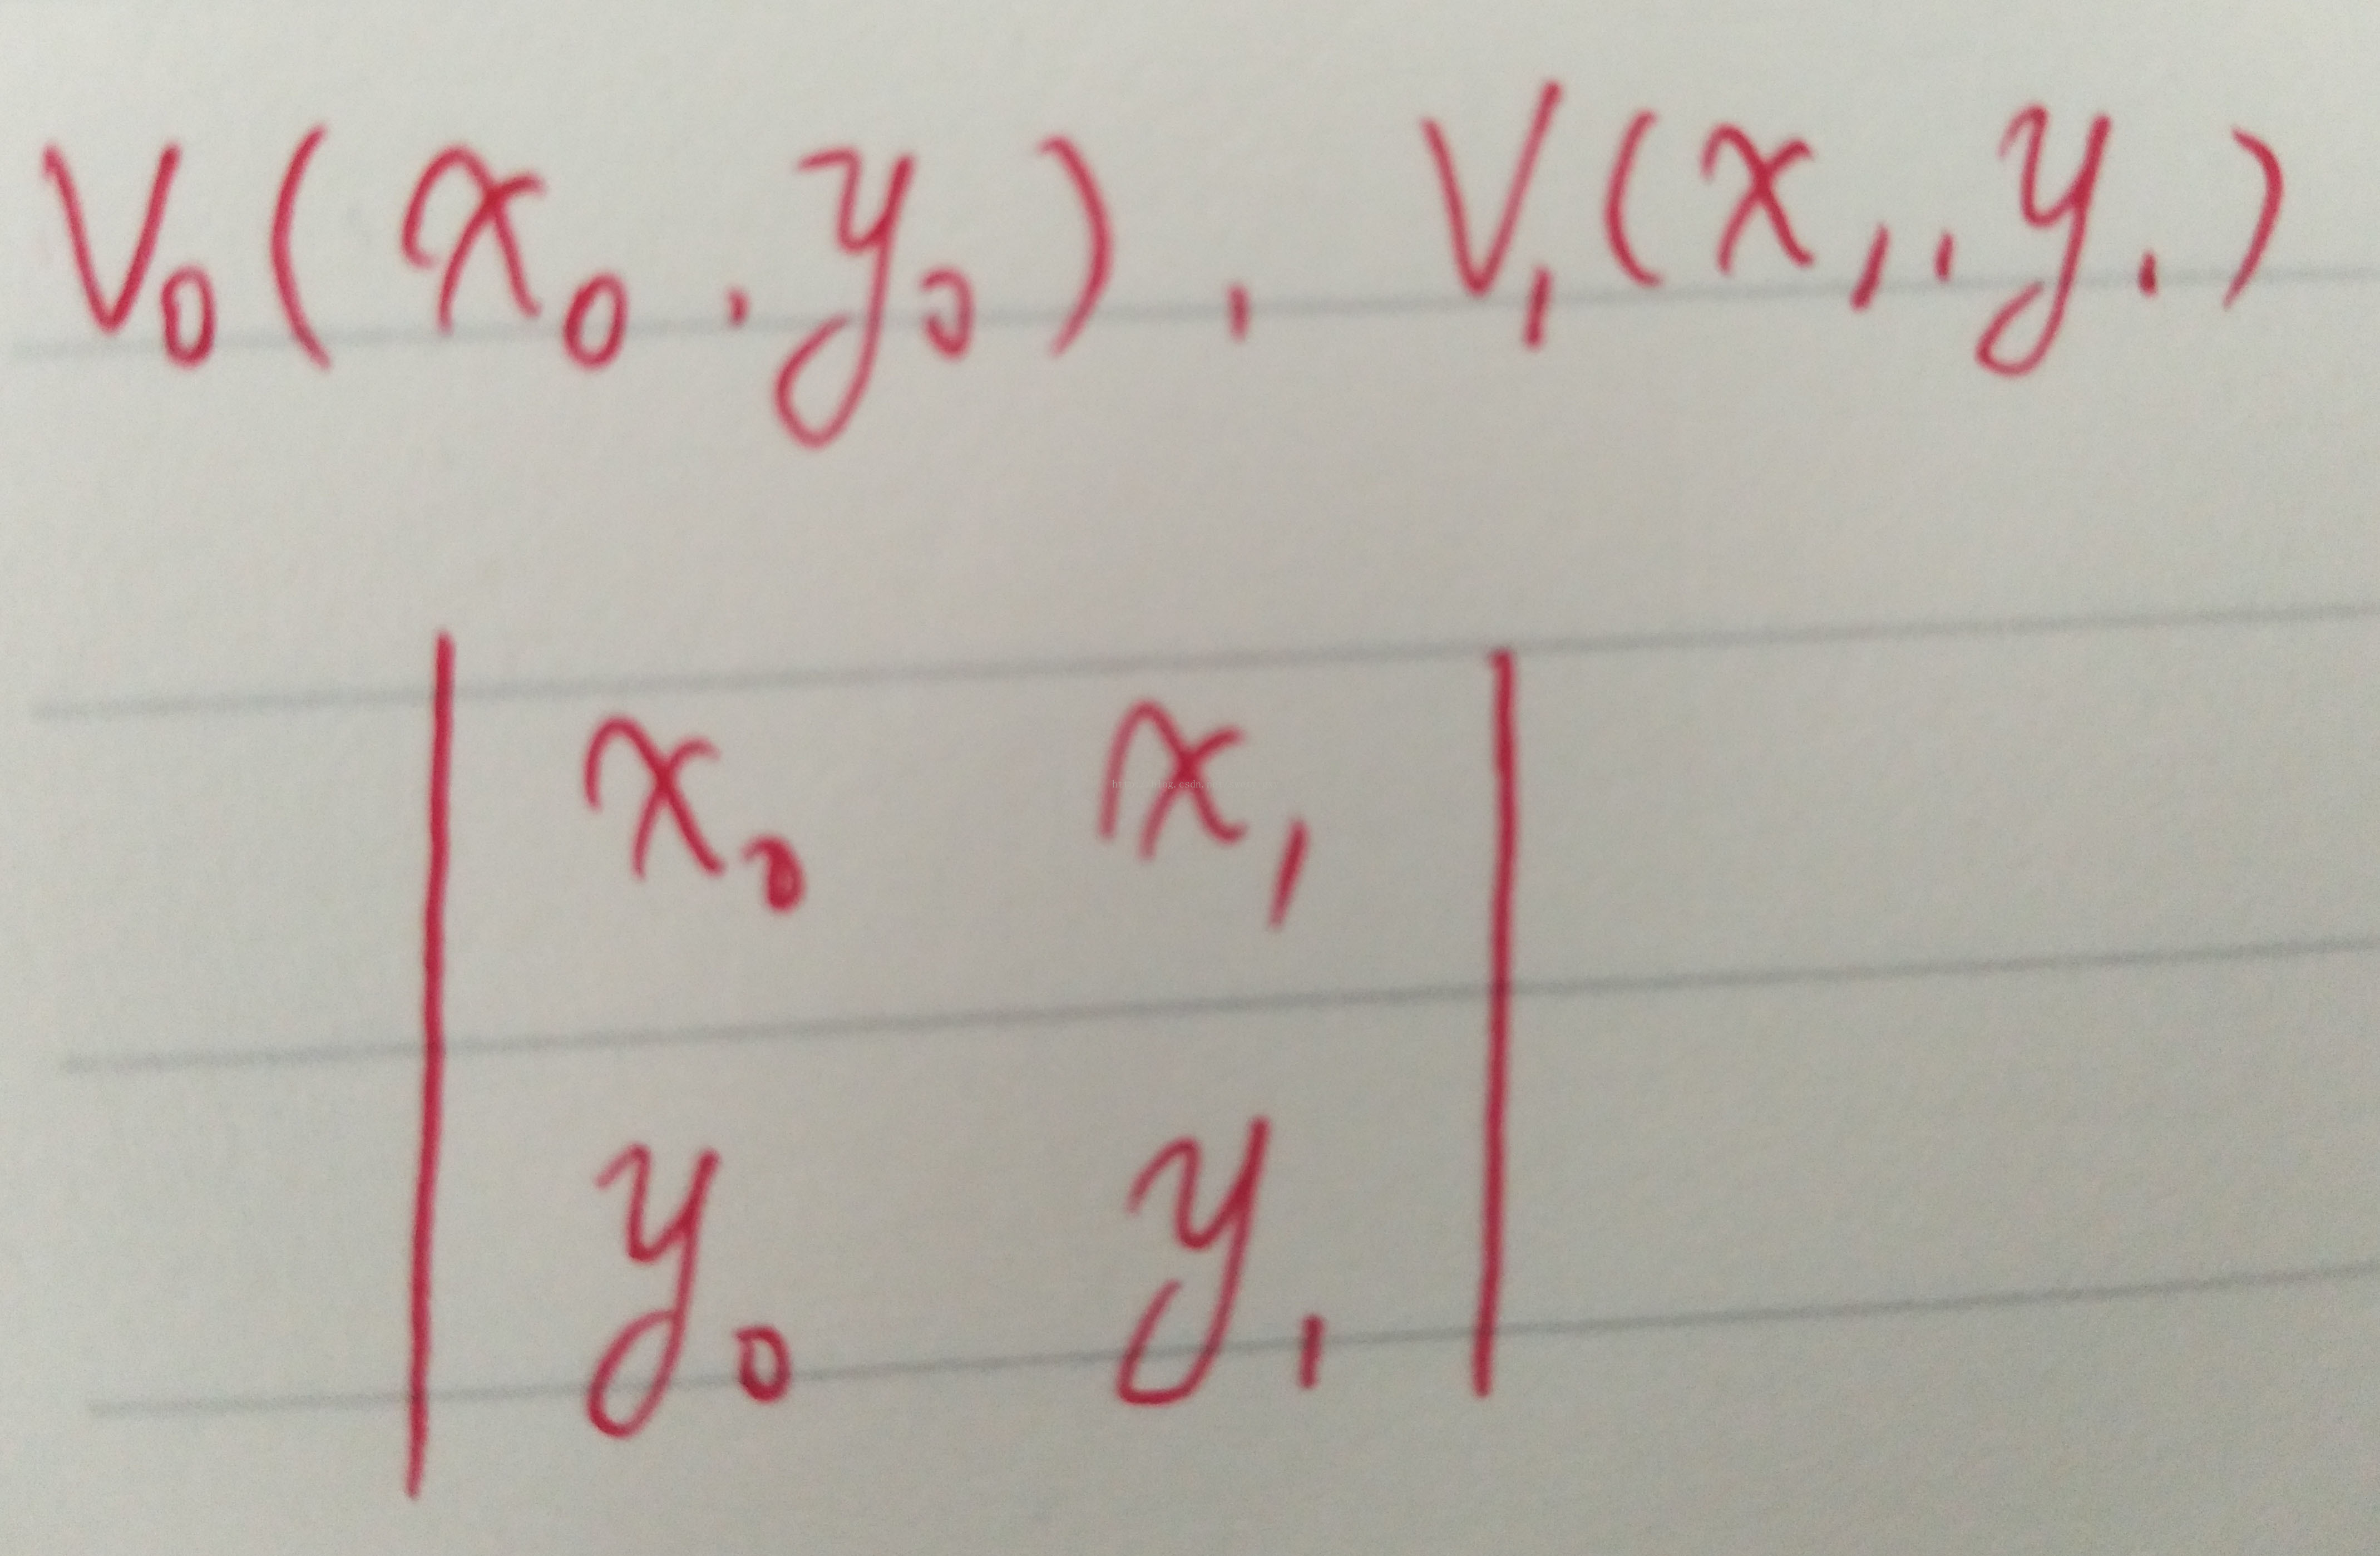 V₀(x₀,y₀), V₁(x₁,y₁)
| x₀ x₁ |
| y₀ y₁ |